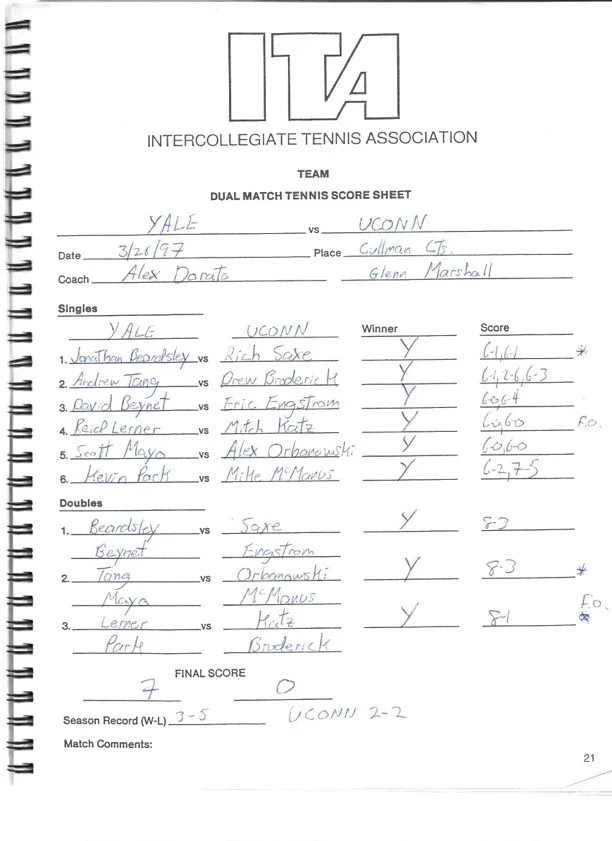 ITA
INTERCOLLEGIATE TENNIS ASSOCIATION
TEAM
DUAL MATCH TENNIS SCORE SHEET
YALE vs UCONN
Date 3/26/97 Place Cullman Cts.
Coach Alex Dorato Glenn Marshall
Singles
YALE UCONN Winner Score
1. Jonathan Beardsley vs Rich Saxe Y 6-1,6-1 *
2. Andrew Tang vs Drew Broderick Y 6-1,2-6,6-3
3. David Beynet vs Eric Engstrom Y 6-0,6-4
4. Reid Lerner vs Mitch Katz Y 6-0,6-0 F.O.
5. Scott Mayo vs Alex Orbanowski Y 6-0,6-0
6. Kevin Park vs Mike McManus Y 6-2,7-5
Doubles
1. Beardsley vs Saxe Y 8-3
Beynet Engstrom
2. Tang vs Orbanowski Y 8-3 *
Mayo McManus
3. Lerner vs Katz Y 8-1 F.O. *
Park Broderick
FINAL SCORE
7 0
Season Record (W-L) 3-5 UCONN 2-2
Match Comments:
21